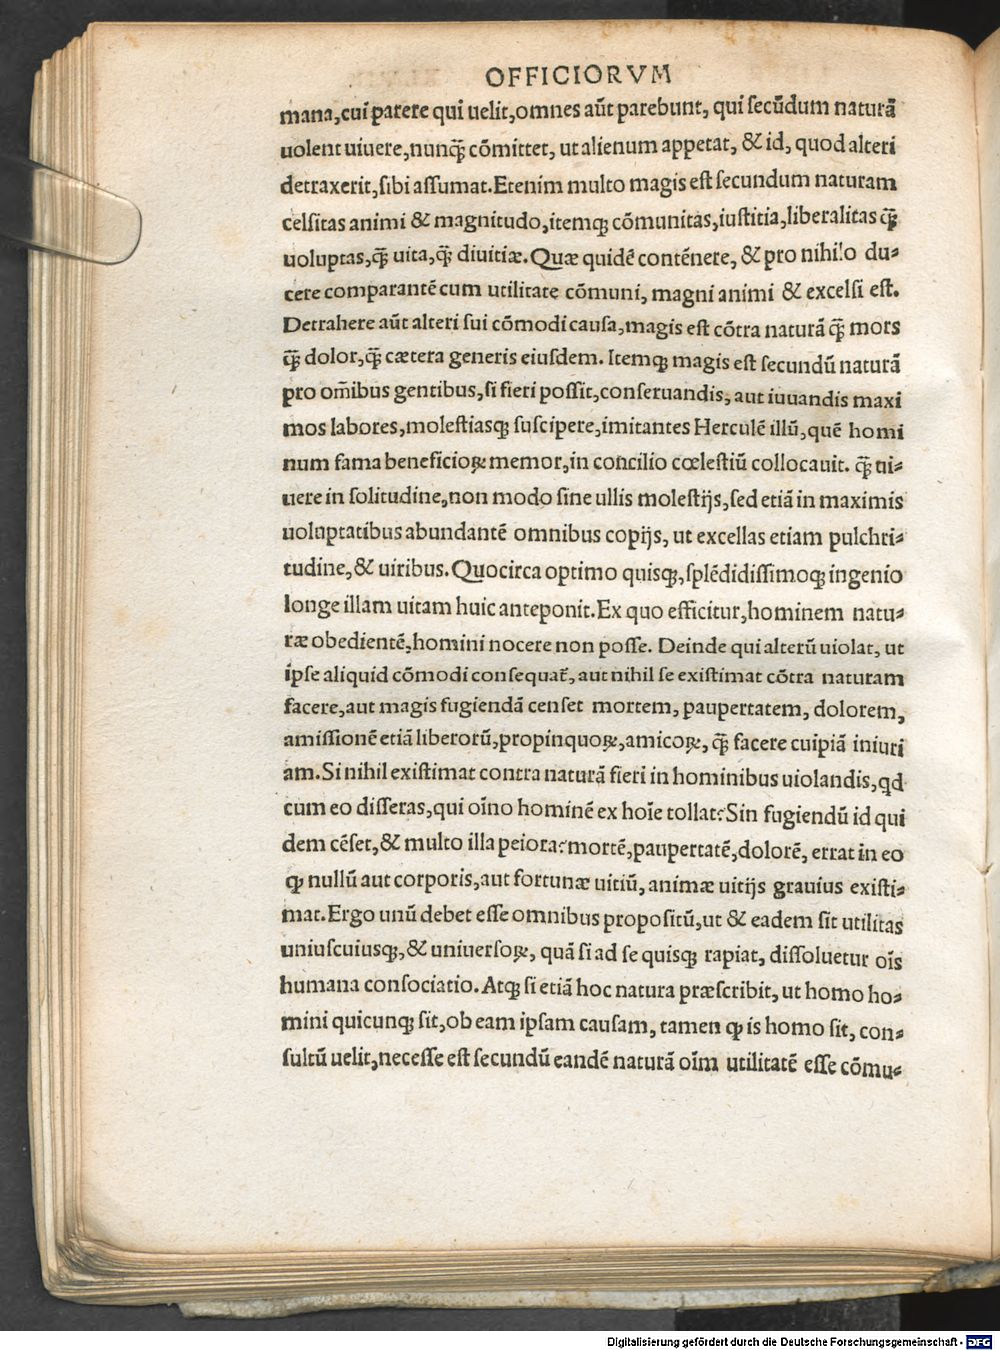 OFFICIORVM
mana,cui parere qui uelit,omnes aūt parebunt, qui secūdum naturā
uolent uiuere,nunq̄ȝ cōmittet, ut alienum appetat, & id, quod alteri
detraxerit,sibi assumat.Etenim multo magis est secundum naturam
celsitas animi & magnitudo,itemqȝ cōmunitas,iustitia,liberalitas q̄ȝ
uoluptas,q̄ȝ uita,q̄ȝ diuitiæ.Quæ quidē contēnere, & pro nihilo du⸗
cere comparantē cum utilitate cōmuni, magni animi & excelsi est.
Detrahere aūt alteri sui cōmodi causa,magis est cōtra naturā q̄ȝ mors
q̄ȝ dolor,q̄ȝ cætera generis eiusdem. Itemqȝ magis est secundū naturā
pro om̄ibus gentibus,si fieri possit,conseruandis, aut iuuandis maxi
mos labores,molestiasqȝ suscipere,imitantes Herculē illū,quē homi
num fama beneficioꝝ memor,in concilio cœlestiū collocauit. q̄ȝ ui⸗
uere in solitudine,non modo sine ullis molestijs,sed etiā in maximis
uoluptatibus abundantē omnibus copijs, ut excellas etiam pulchri⸗
tudine,& uiribus.Quocirca optimo quisqȝ,splēdidissimoqȝ ingenio
longe illam uitam huic anteponit.Ex quo efficitur,hominem natu⸗
ræ obedientē,homini nocere non posse. Deinde qui alterū uiolat, ut
ipse aliquid cōmodi consequat᷑, aut nihil se existimat cōtra naturam
facere,aut magis fugiendā censet mortem, paupertatem, dolorem,
amissionē etiā liberorū,propinquoꝝ,amicoꝝ, q̄ȝ facere cuipiā iniuri
am.Si nihil existimat contra naturā fieri in hominibus uiolandis,qd
cum eo disseras,qui oīno hominē ex hoīe tollat?Sin fugiendū id qui
dem cēset,& multo illa peiora?mortē,paupertatē,dolorē, errat in eo
ꝙ nullū aut corporis,aut fortunæ uitiū, animæ uitijs grauius existi⸗
mat.Ergo unū debet esse omnibus propositū,ut & eadem sit utilitas
uniuscuiusqȝ,& uniuersoꝝ, quā si ad se quisqȝ rapiat, dissoluetur oīs
humana consociatio. Atqȝ si etiā hoc natura præscribit, ut homo ho⸗
mini quicunqȝ sit,ob eam ipsam causam, tamen ꝙ is homo sit, con⸗
sultū uelit,necesse est secundū eandē naturā oīm utilitatē esse cōmu⸗
Digitalisierung gefördert durch die Deutsche Forschungsgemeinschaft - DFG